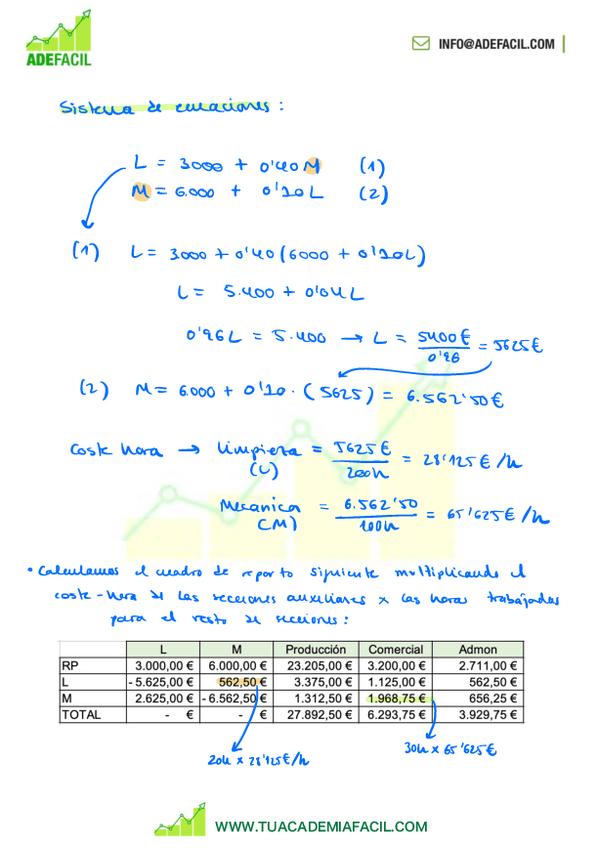 ADEFACIL
INFO@ADEFACIL.COM
Sistema de ecuaciones :
L = 3000 + 0'40M (1)
M = 6.000 + 0'10L (2)
(1) L = 3000 + 0'40 (6000 + 0'10L)
L = 5.400 + 0'04L
0'96L = 5.400 → L = 5400€ / 0'96 = 5625€
(2) M = 6.000 + 0'10 · (5625) = 6.562'50€
Coste hora → Limpieza (L) = 5625€ / 200h = 28'125€/h
Mecanica (M) = 6.562'50 / 100h = 65'625€/h
• Calculamos el cuadro de reparto siguiente multiplicando el
coste-hora de las secciones auxiliares x las horas trabajadas
para el resto de secciones :
L M Producción Comercial Admon
RP 3.000,00 € 6.000,00 € 23.205,00 € 3.200,00 € 2.711,00 €
L - 5.625,00 € 562,50 € 3.375,00 € 1.125,00 € 562,50 €
M 2.625,00 € - 6.562,50 € 1.312,50 € 1.968,75 € 656,25 €
TOTAL - € - € 27.892,50 € 6.293,75 € 3.929,75 €
20h x 28'125€/h
30h x 65'625€
WWW.TUACADEMIAFACIL.COM